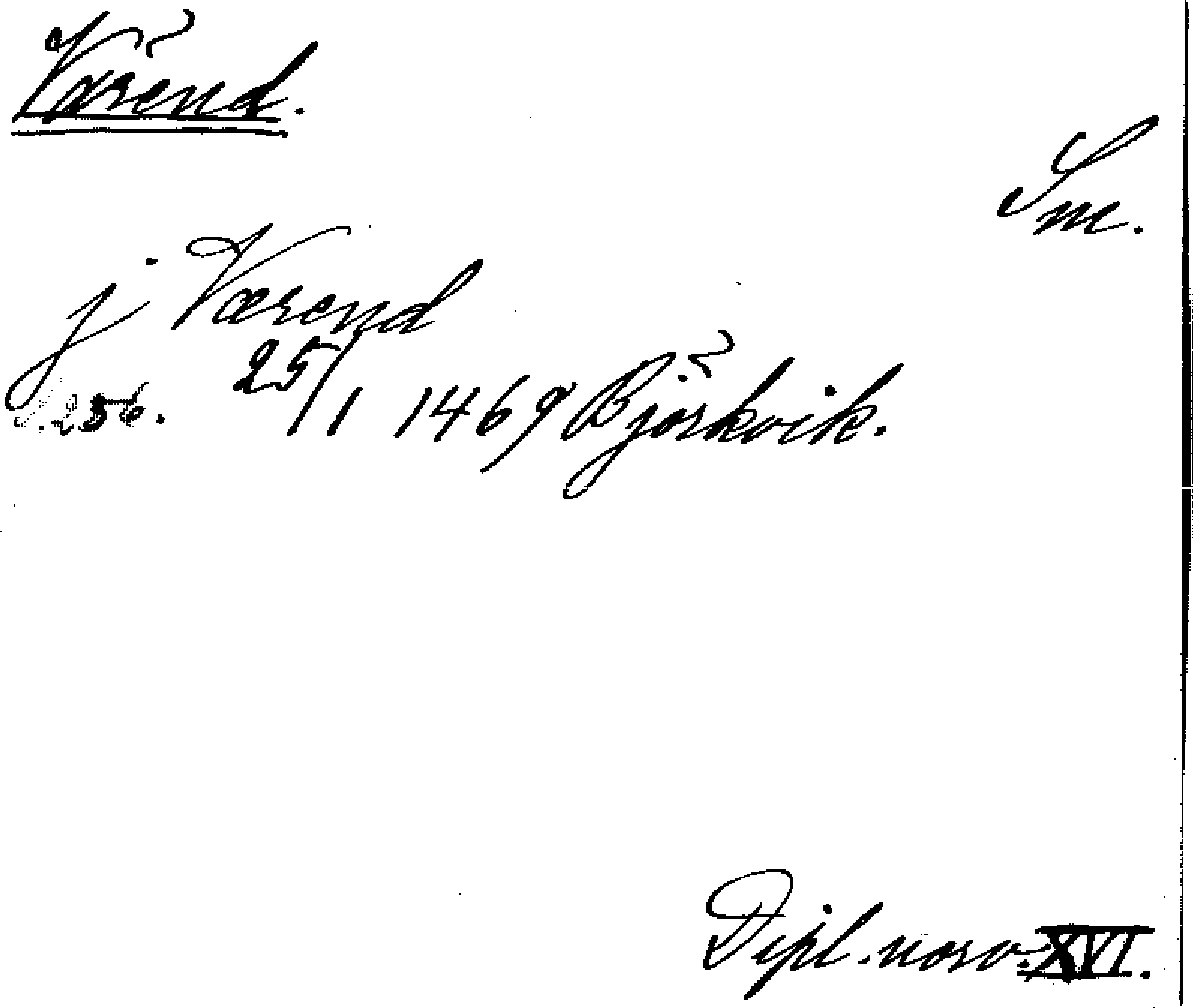 Värend.
Sm.
j Værend
s. 256. 25/1 1469 Björkvik.
Dipl. norv. XVI.